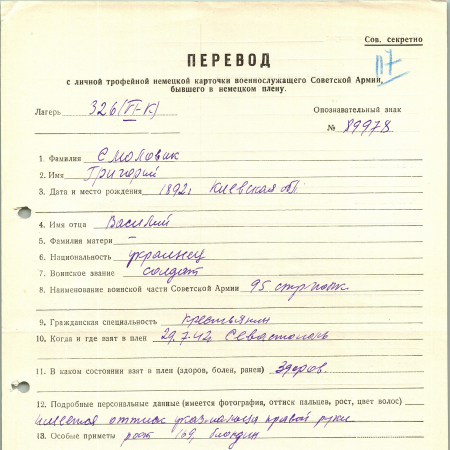 Сов. секретно
117
ПЕРЕВОД
с личной трофейной немецкой карточки военнослужащего Советской Армии,
бывшего в немецком плену.
Лагерь 326 (VI-К)
Опознавательный знак
№ 89978
1. Фамилия Смоловик
2. Имя Григорий
3. Дата и место рождения 1892, Киевская
4. Имя отца Василий
5. Фамилия матери –
6. Национальность украинец
7. Воинское звание солдат
8. Наименование воинской части Советской Армии 95
9. Гражданская специальность крестьянин
10. Когда и где взят в плен 29.7.42, Севастополь
11. В каком состоянии взят в плен (здоров, болен, ранен) здоров.
12. Подробные персональные данные (имеется фотография, оттиск пальцев, рост, цвет волос)
имеется оттиск указ. пальца правой руки
13. Особые приметы рост 169, блондин